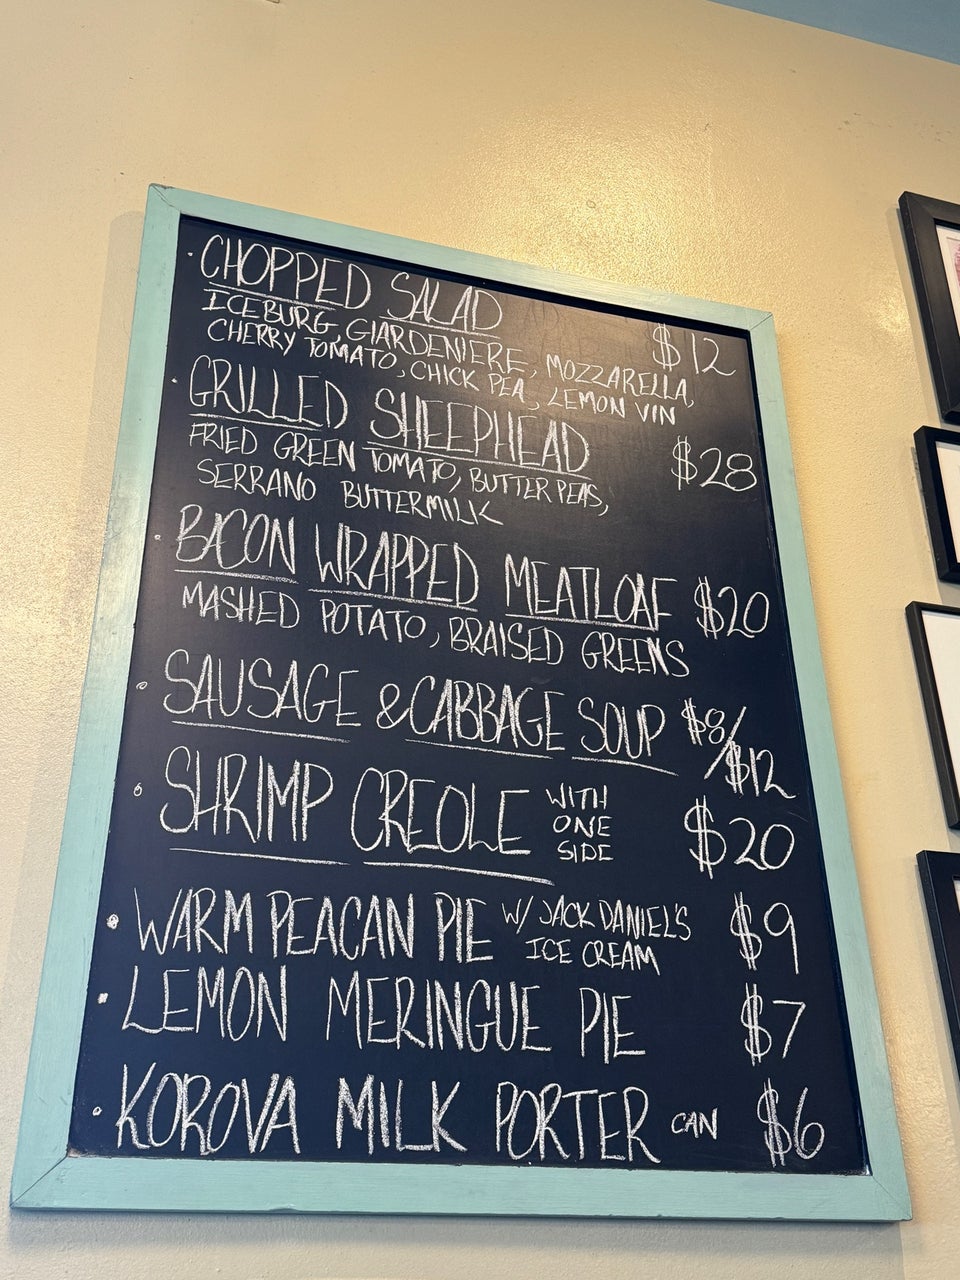 · CHOPPED SALAD $12
ICEBURG, GIARDENIERE, MOZZARELLA,
CHERRY TOMATO, CHICK PEA, LEMON VIN
· GRILLED SHEEPHEAD $28
FRIED GREEN TOMATO, BUTTER PEAS,
SERRANO BUTTERMILK
· BACON WRAPPED MEATLOAF $20
MASHED POTATO, BRAISED GREENS
· SAUSAGE & CABBAGE SOUP $8/$12
· SHRIMP CREOLE WITH ONE SIDE $20
· WARM PEACAN PIE W/ JACK DANIEL'S ICE CREAM $9
· LEMON MERINGUE PIE $7
· KOROVA MILK PORTER CAN $6